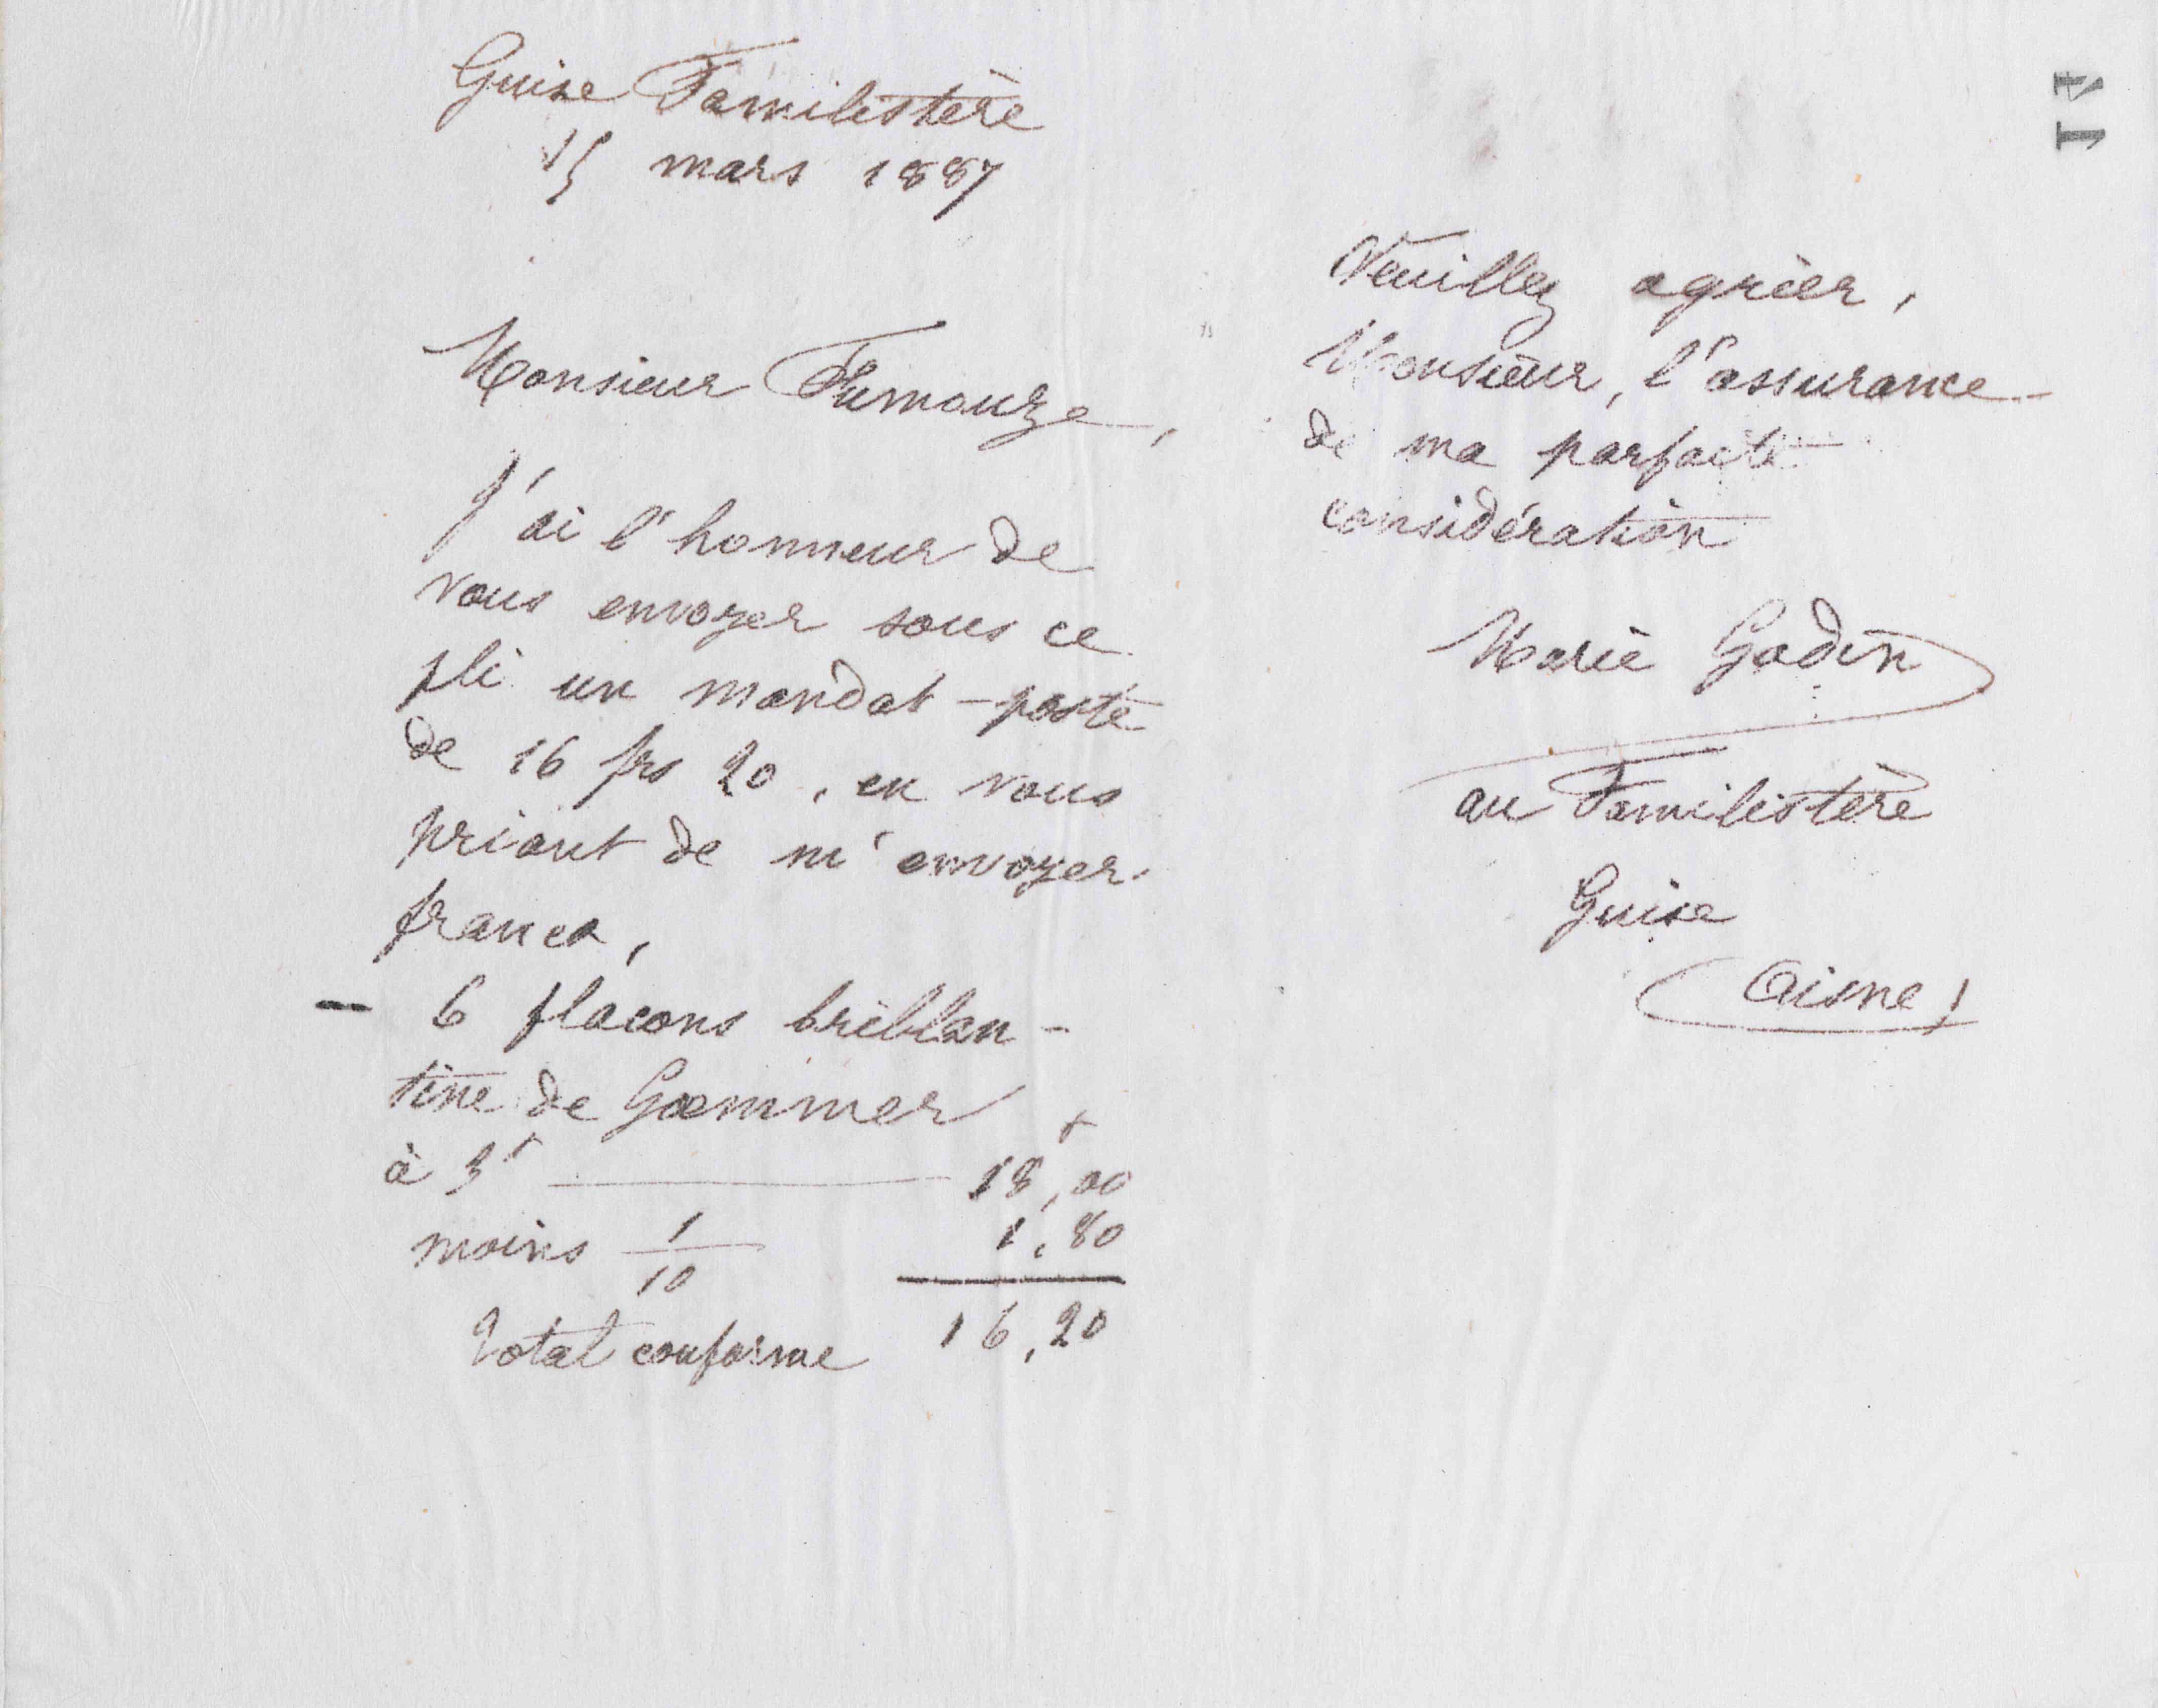 Guise Familistère
15 mars 1887
Monsieur Fumouze,
J'ai l'honneur de
vous envoyer sous ce
pli un mandat-poste
de 16 frs 20, en vous
priant de m'envoyer
franco,
- 6 flacons brillan-
tine de Goemmer
à 3f 18,00
moins 1/10 1,80
Total conforme 16,20
Veuillez agréer,
Monsieur, l'assurance
de ma parfaite
considération
Marie Godin
au Familistère
Guise
(Aisne)